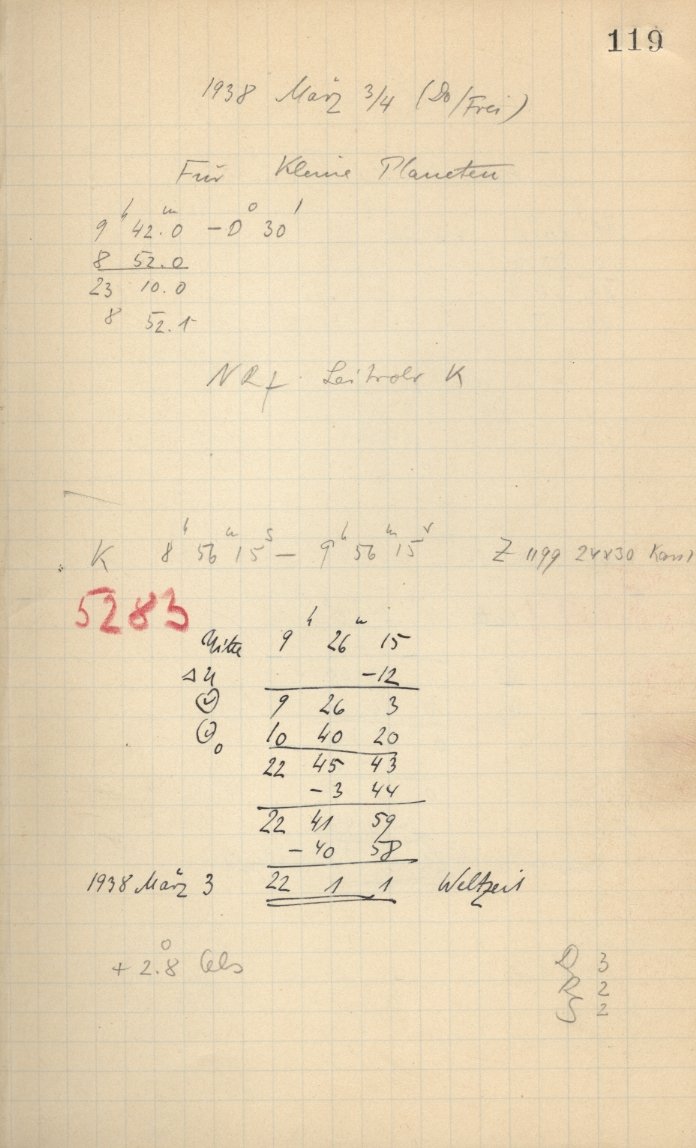 119
1938 März 3/4 (Do/Frei)
Für Kleine Planeten
9ʰ 42.ᵐ0 -0° 30'
8 52.0
23 10.0
8 52.1
NRf Leitrohr K
K 8ʰ 56ᵐ 15ˢ - 9ʰ 56ᵐ 15ˢ Z 1199 24x30
5283
Mitte 9ʰ 26ᵐ 15
ΔU -12
9 26 3
10 40 20
22 45 43
-3 44
22 41 59
-40 58
1938 März 3 22 1 1 Weltzeit
+2.°8 Cels
D 3
R 2
S 2